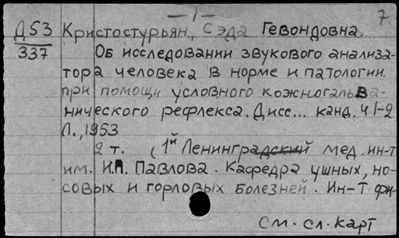 — 1 — 7
Д53 Кристостурьян, Сэда Гевондовна.
337
Об исследовании звукового анализа-
тора человека в норме и патологии
при помощи условного кожногальва-
нического рефлекса. Дисс... канд. ч 1-2
Л., 1953
2 т. (1й Ленинградский мед. ин-т
им. И.П. Павлова. Кафедра ушных, но-
совых и горловых болезней. Ин-т фи-
см. сл. карт